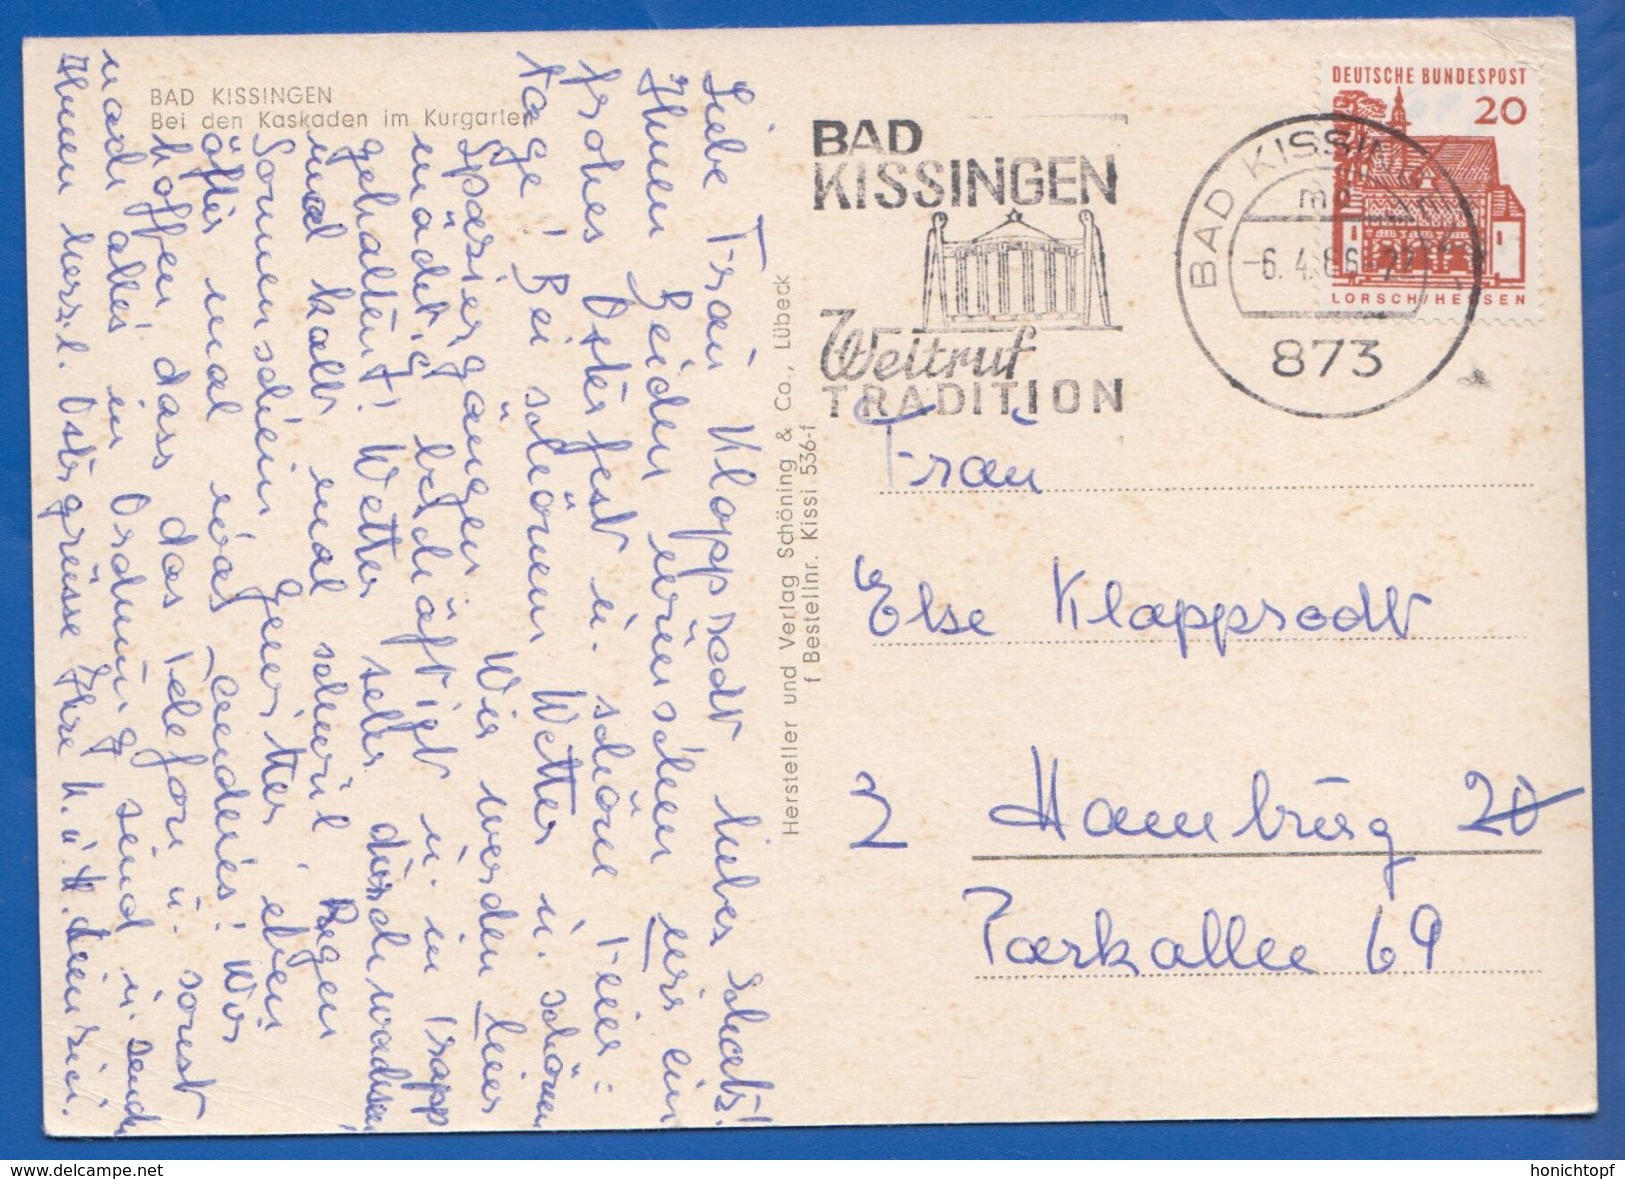 BAD KISSINGEN
Bei den Kaskaden im Kurgarten
Liebe Frau Klapprodt liebes Schatz!
Ihnen Beiden wünschen wir ein
frohes Osterfest u. schöne Feier=
tage! Bei schönem Wetter u. schönen
Spaziergängen Wir werden hier
mächtig beschäftigt u. in Trapp
gehalten! Wetter sehr durchwachsen,
mal kalt mal schwül, Regen
Sonnenschein Gewitter, eben
öfter mal was anderes! Wir
hoffen, dass das Telefon u. sonst
noch alles in Ordnung sind u. senden
Ihnen herzl. Ostergrüsse Ihre
Hersteller und Verlag Schöning & Co., Lübeck
f Bestellnr. Kissi 536-f
BAD
KISSINGEN
Weltruf
TRADITION
BAD KISSIN
-6.4.66
873
DEUTSCHE BUNDESPOST
20
LORSCH/HESSEN
Frau
Else Klapprodt
2 Hamburg 20
Parkallee 69
delcampe.net
honichtopf